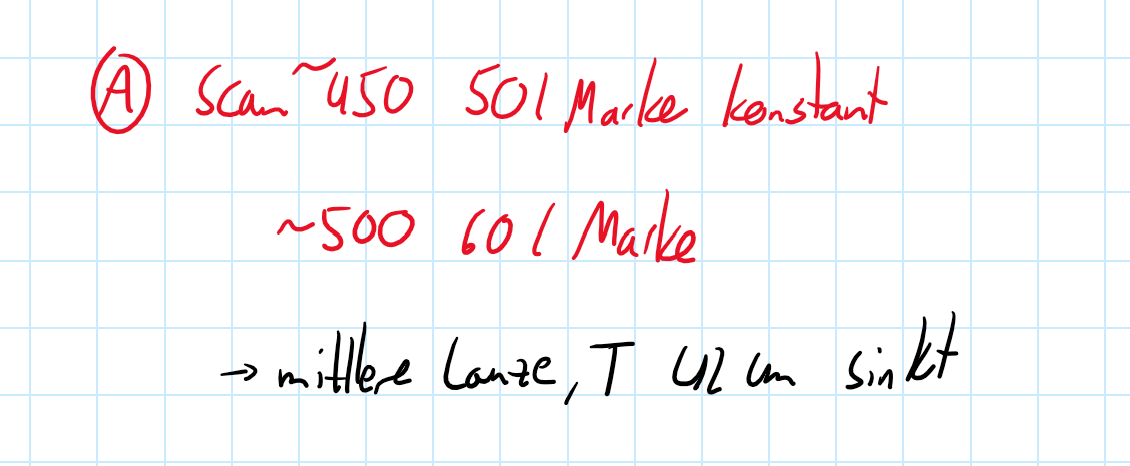 Ⓐ Scan ~450 50 l Marke konstant
~500 60 l Marke
→ mittlere Lanze, T 42 cm sinkt